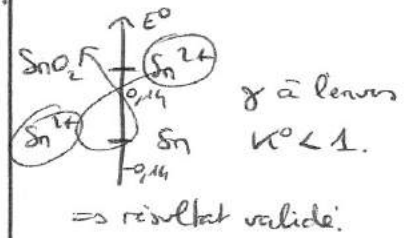 E°
SnO₂ Sn²⁺
0,14
Sn²⁺ Sn
-0,14
γ à l'envers
K° < 1.
=> résultat validé.